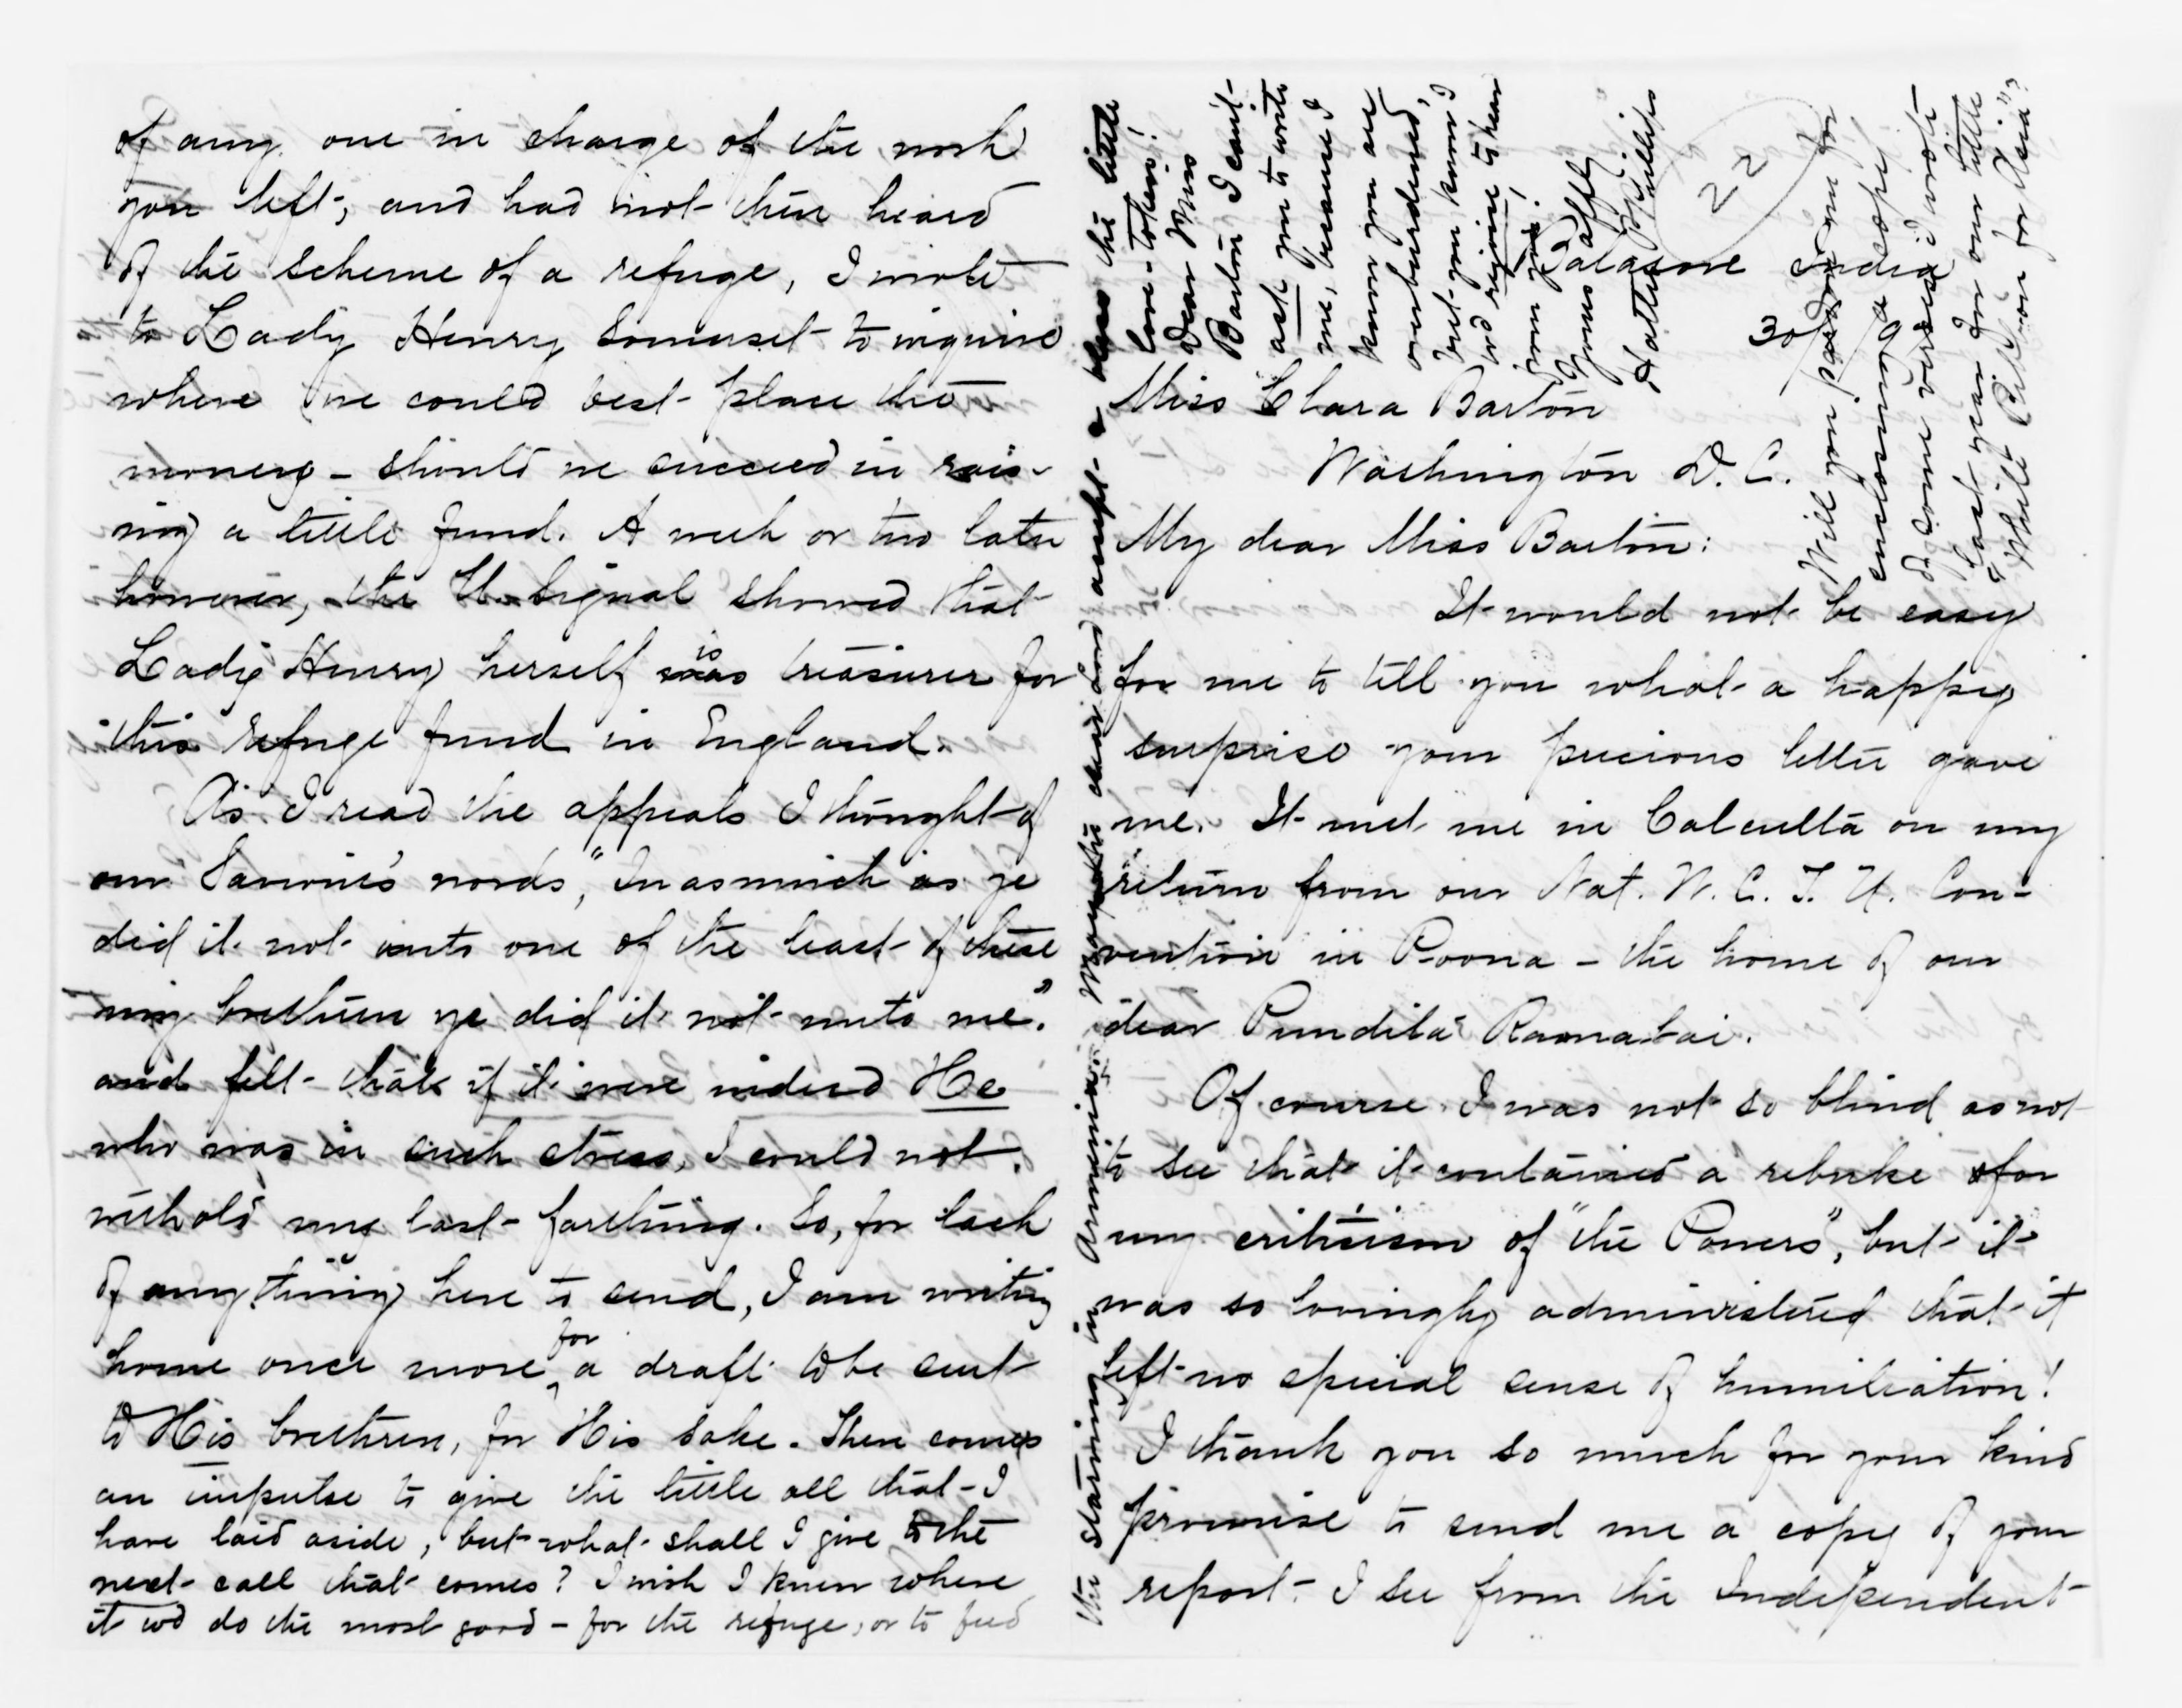 of any one in charge of the work
you left, and had not then heard
of the scheme of a refuge, I wrote
to Lady Henry Somerset to inquire
where we could best place the
money – should we succeed in rais-
ing a little fund. A week or two later
however, the U. Signal showed that
Lady Henry herself was is treasurer for
this refuge fund in England.
As I read the appeals I thought of
our Saviour's words, "Inasmuch as ye
did it not unto one of the least of these
my brethren ye did it not unto me".
and felt that if it were indeed He
who was in such stress, I could not
withold my last farthing. So, for lack
of anything here to send, I am writing
home once more for a draft to be sent
to His brethren, for His sake. There comes
an impulse to give the little all that I
have laid aside, but what shall I give to the
next call that comes? I wish I knew where
it wd do the most good – for the refuge, or to feed
the starving in Armenia. May the dear Lord accept & bless the little
love-token!
Dear Miss
Barton I can't
ask you to write
me, because I
know you are
overburdened,
but you know I
wd rejoice to hear
from you!
Yours affly
Hattie Phillips
22
Balasore India
30/ /9
Miss Clara Barton
Washington D.C.
My dear Miss Barton:
It would not be easy
for me to tell you what a happy
surprise your precious letter gave
me. It met me in Calcutta on my
return from our Nat. W. C. T. U. Con-
vention in Poona – the home of our
dear Pundita Ramabai.
Of course I was not so blind as not
to see that it contained a rebuke for
my criticism of "the Powers", but it
was so lovingly administered that it
left no special sense of humiliation!
I thank you so much for your kind
promise to send me a copy of your
report. I see from the Independent
Will you pardon me for
enclosing a copy
of some verses I wrote
last year for our little
"White Ribbon for Asia"?